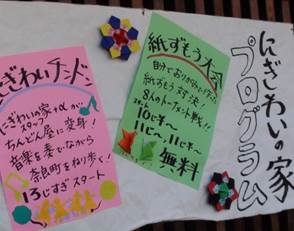 にぎわいの家
プログラム
紙ずもう大会
紙ずもう対決!
8人のトーナメント戦!!
10じ半〜
11じ〜,11じ半〜
無料
にぎわいチンドン
にぎわいの家
スタッフ
ちんどん屋に変身!
音楽を奏でながら
奈良町をねり歩く!
13じすぎスタート